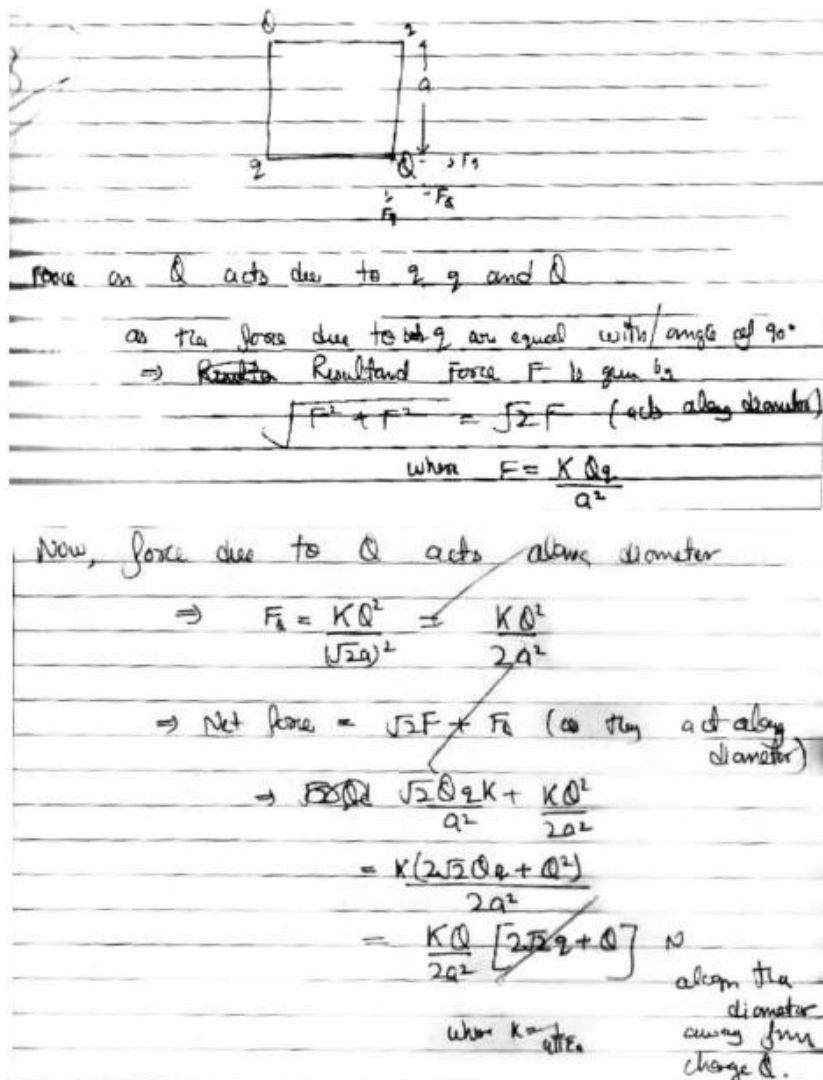 Q
q
a
q
Q
Fq
FQ
Fq
Force on Q acts due to q q and Q
as the force due to q are equal with angle of 90°
⇒ Resultand Force F is given by
√F² + F² = √2 F (acts along diameter)
where F = K Qq / a²
Now, force due to Q acts along diameter
⇒ FQ = KQ² / (√2a)² = KQ² / 2a²
⇒ Net force = √2F + FQ (as they act along
diameter)
⇒ √2QqK / a² + KQ² / 2a²
= K(2√2Qq + Q²) / 2a²
= KQ / 2a² [2√2q + Q] N
along the
diameter
away from
charge Q.
where K = 1/4πε₀